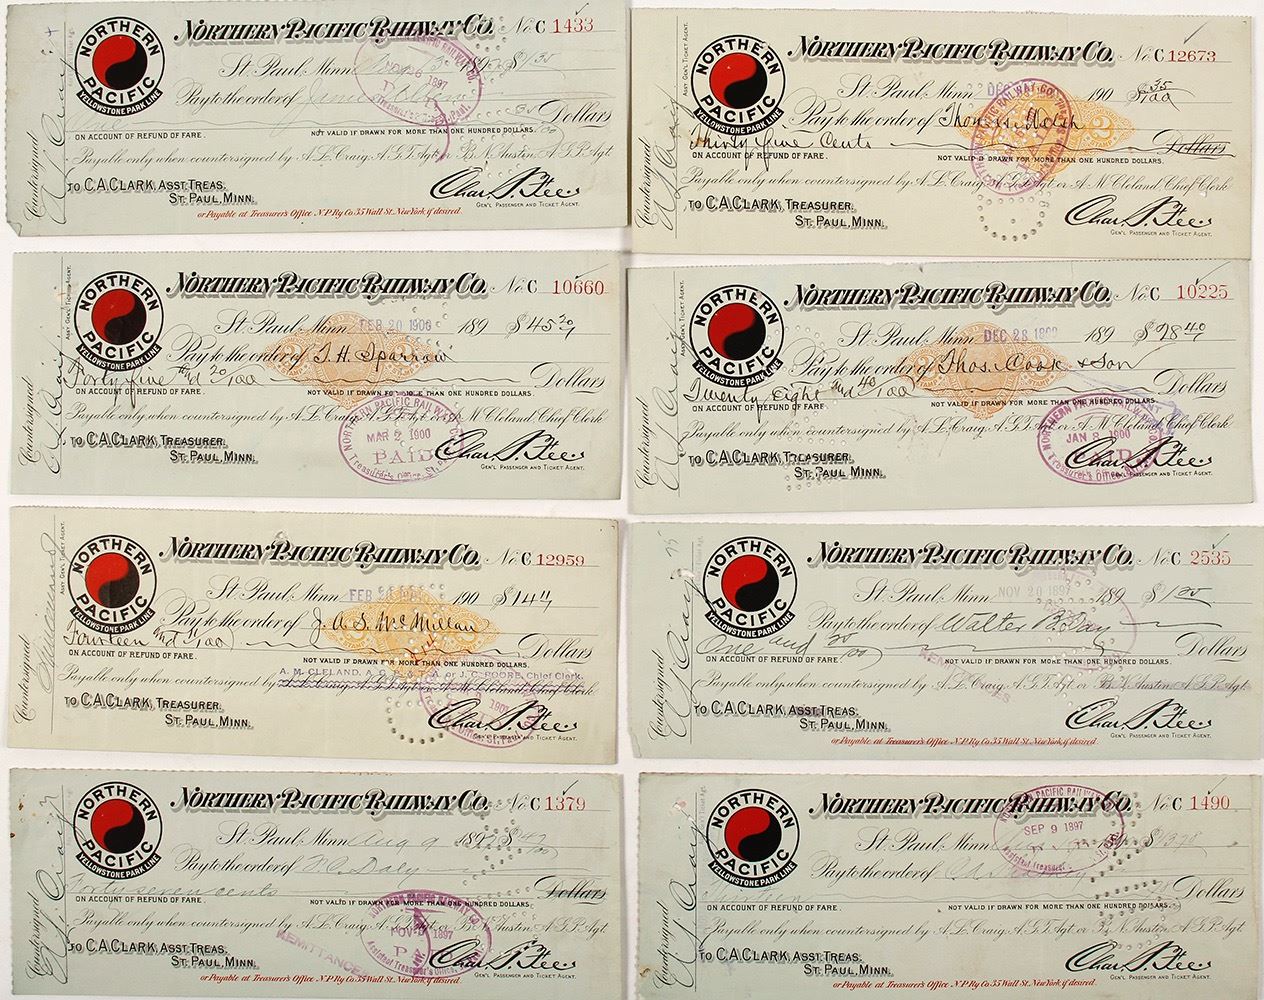 NORTHERN PACIFIC RAILWAY CO. No. C 1433
NORTHERN PACIFIC
YELLOWSTONE PARK LINE
St. Paul, Minn. 189
Pay to the order of
Dollars
ON ACCOUNT OF REFUND OF FARE. NOT VALID IF DRAWN FOR MORE THAN ONE HUNDRED DOLLARS.
Payable only when countersigned by A. L. Craig A. G. T. Agt. or B. N. Austin A. G. P. Agt.
TO C. A. CLARK, ASST. TREAS.
ST. PAUL, MINN.
Chas. S. Fee
GEN'L PASSENGER AND TICKET AGENT.
or Payable at Treasurer's Office N.P. Ry. Co. 35 Wall St. New York if desired.
Countersigned
NORTHERN PACIFIC RAILWAY CO. No. C 12673
NORTHERN PACIFIC
YELLOWSTONE PARK LINE
St. Paul, Minn. DEC 190 $ 35/100
Pay to the order of Thos. H. Walsh
Thirty five Cents Dollars
ON ACCOUNT OF REFUND OF FARE. NOT VALID IF DRAWN FOR MORE THAN ONE HUNDRED DOLLARS.
Payable only when countersigned by A. L. Craig A. G. T. Agt. or A. M. Cleland Chief Clerk
TO C. A. CLARK, TREASURER.
ST. PAUL, MINN.
Chas. S. Fee
GEN'L PASSENGER AND TICKET AGENT.
Countersigned
ASST GEN'L TICKET AGENT.
NORTHERN PACIFIC RAILWAY CO. No. C 10660
NORTHERN PACIFIC
YELLOWSTONE PARK LINE
St. Paul, Minn. FEB 20 1900 189 $ 45 20/
Pay to the order of T. H. Sparrow
Forty five and 20/100 Dollars
ON ACCOUNT OF REFUND OF FARE. NOT VALID IF DRAWN FOR MORE THAN ONE HUNDRED DOLLARS.
Payable only when countersigned by A. L. Craig A. G. T. Agt. or A. M. Cleland Chief Clerk
NORTHERN PACIFIC RAILWAY CO.
MAR 2 1900
PAID
TO C. A. CLARK, TREASURER.
ST. PAUL, MINN.
Chas. S. Fee
GEN'L PASSENGER AND TICKET AGENT.
Countersigned
ASST GEN'L TICKET AGENT.
NORTHERN PACIFIC RAILWAY CO. No. C 10225
NORTHERN PACIFIC
YELLOWSTONE PARK LINE
St. Paul, Minn. DEC 28 1899 189 $ 28 40/
Pay to the order of Thos. Cook & Son
Twenty Eight and 40/100 Dollars
ON ACCOUNT OF REFUND OF FARE. NOT VALID IF DRAWN FOR MORE THAN ONE HUNDRED DOLLARS.
Payable only when countersigned by A. L. Craig A. G. T. Agt. or A. M. Cleland Chief Clerk
JAN 8 1900
TO C. A. CLARK, TREASURER.
ST. PAUL, MINN.
Chas. S. Fee
GEN'L PASSENGER AND TICKET AGENT.
Countersigned
ASST GEN'L TICKET AGENT.
NORTHERN PACIFIC RAILWAY CO. No. C 12959
NORTHERN PACIFIC
YELLOWSTONE PARK LINE
St. Paul, Minn. FEB 190 $ 14 11/
Pay to the order of J. A. S. McMillan
Fourteen and 11/100 Dollars
ON ACCOUNT OF REFUND OF FARE. NOT VALID IF DRAWN FOR MORE THAN ONE HUNDRED DOLLARS.
A. M. CLELAND, or J. C. POORE, Chief Clerk.
Payable only when countersigned by A. L. Craig A. G. T. Agt. or A. M. Cleland Chief Clerk
TO C. A. CLARK, TREASURER.
ST. PAUL, MINN.
Chas. S. Fee
GEN'L PASSENGER AND TICKET AGENT.
Countersigned
ASST GEN'L TICKET AGENT.
NORTHERN PACIFIC RAILWAY CO. No. C 2535
NORTHERN PACIFIC
YELLOWSTONE PARK LINE
St. Paul, Minn. NOV 20 1897 189 $
Pay to the order of Walter
One and Dollars
ON ACCOUNT OF REFUND OF FARE. NOT VALID IF DRAWN FOR MORE THAN ONE HUNDRED DOLLARS.
Payable only when countersigned by A. L. Craig A. G. T. Agt. or B. N. Austin A. G. P. Agt.
TO C. A. CLARK, ASST. TREAS.
ST. PAUL, MINN.
Chas. S. Fee
GEN'L PASSENGER AND TICKET AGENT.
or Payable at Treasurer's Office N.P. Ry. Co. 35 Wall St. New York if desired.
Countersigned
NORTHERN PACIFIC RAILWAY CO. No. C 1379
NORTHERN PACIFIC
YELLOWSTONE PARK LINE
St. Paul, Minn. Aug 189 $ 47/100
Pay to the order of Daly
Forty seven cents Dollars
ON ACCOUNT OF REFUND OF FARE. NOT VALID IF DRAWN FOR MORE THAN ONE HUNDRED DOLLARS.
Payable only when countersigned by A. L. Craig A. G. T. Agt. or B. N. Austin A. G. P. Agt.
REMITTANCE
NORTHERN PACIFIC RAILWAY CO.
1897
TO C. A. CLARK, ASST. TREAS.
ST. PAUL, MINN.
Chas. S. Fee
GEN'L PASSENGER AND TICKET AGENT.
or Payable at Treasurer's Office N.P. Ry. Co. 35 Wall St. New York if desired.
Countersigned
NORTHERN PACIFIC RAILWAY CO. No. C 1490
NORTHERN PACIFIC
YELLOWSTONE PARK LINE
SEP 9 1897
St. Paul, Minn.
Pay to the order of
Dollars
ON ACCOUNT OF REFUND OF FARE NOT VALID IF DRAWN FOR MORE THAN ONE HUNDRED DOLLARS.
Payable only when countersigned by A. L. Craig A. G. T. Agt. or B. N. Austin A. G. P. Agt.
TO C. A. CLARK, ASST. TREAS.
ST. PAUL, MINN.
Chas. S. Fee
GEN'L PASSENGER AND TICKET AGENT.
or Payable at Treasurer's Office N.P. Ry. Co. 35 Wall St. New York if desired.
Countersigned